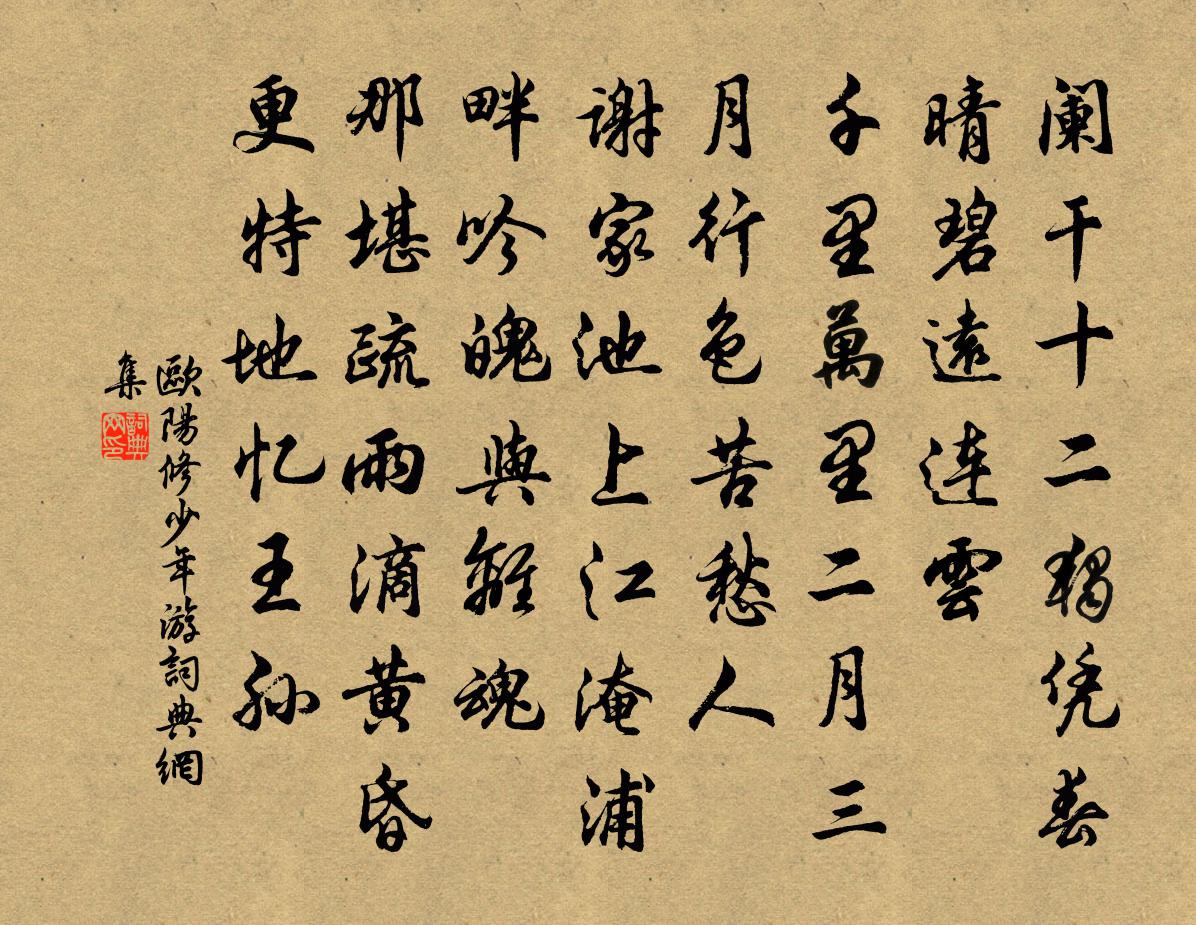 阑干十二獨凭春
晴碧遠連雲
千里萬里二月三
月行色苦愁人
謝家池上江淹浦
畔吟魄與離魂
那堪疏雨滴黄昏
更特地忆王孫
歐陽修少年游詞典網
集
詞典
网印